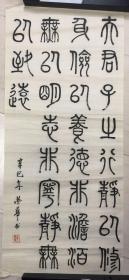 夫君子之行靜以修
身儉以養德非澹泊
無以明志非寧靜無
以致遠
辛巳年
书